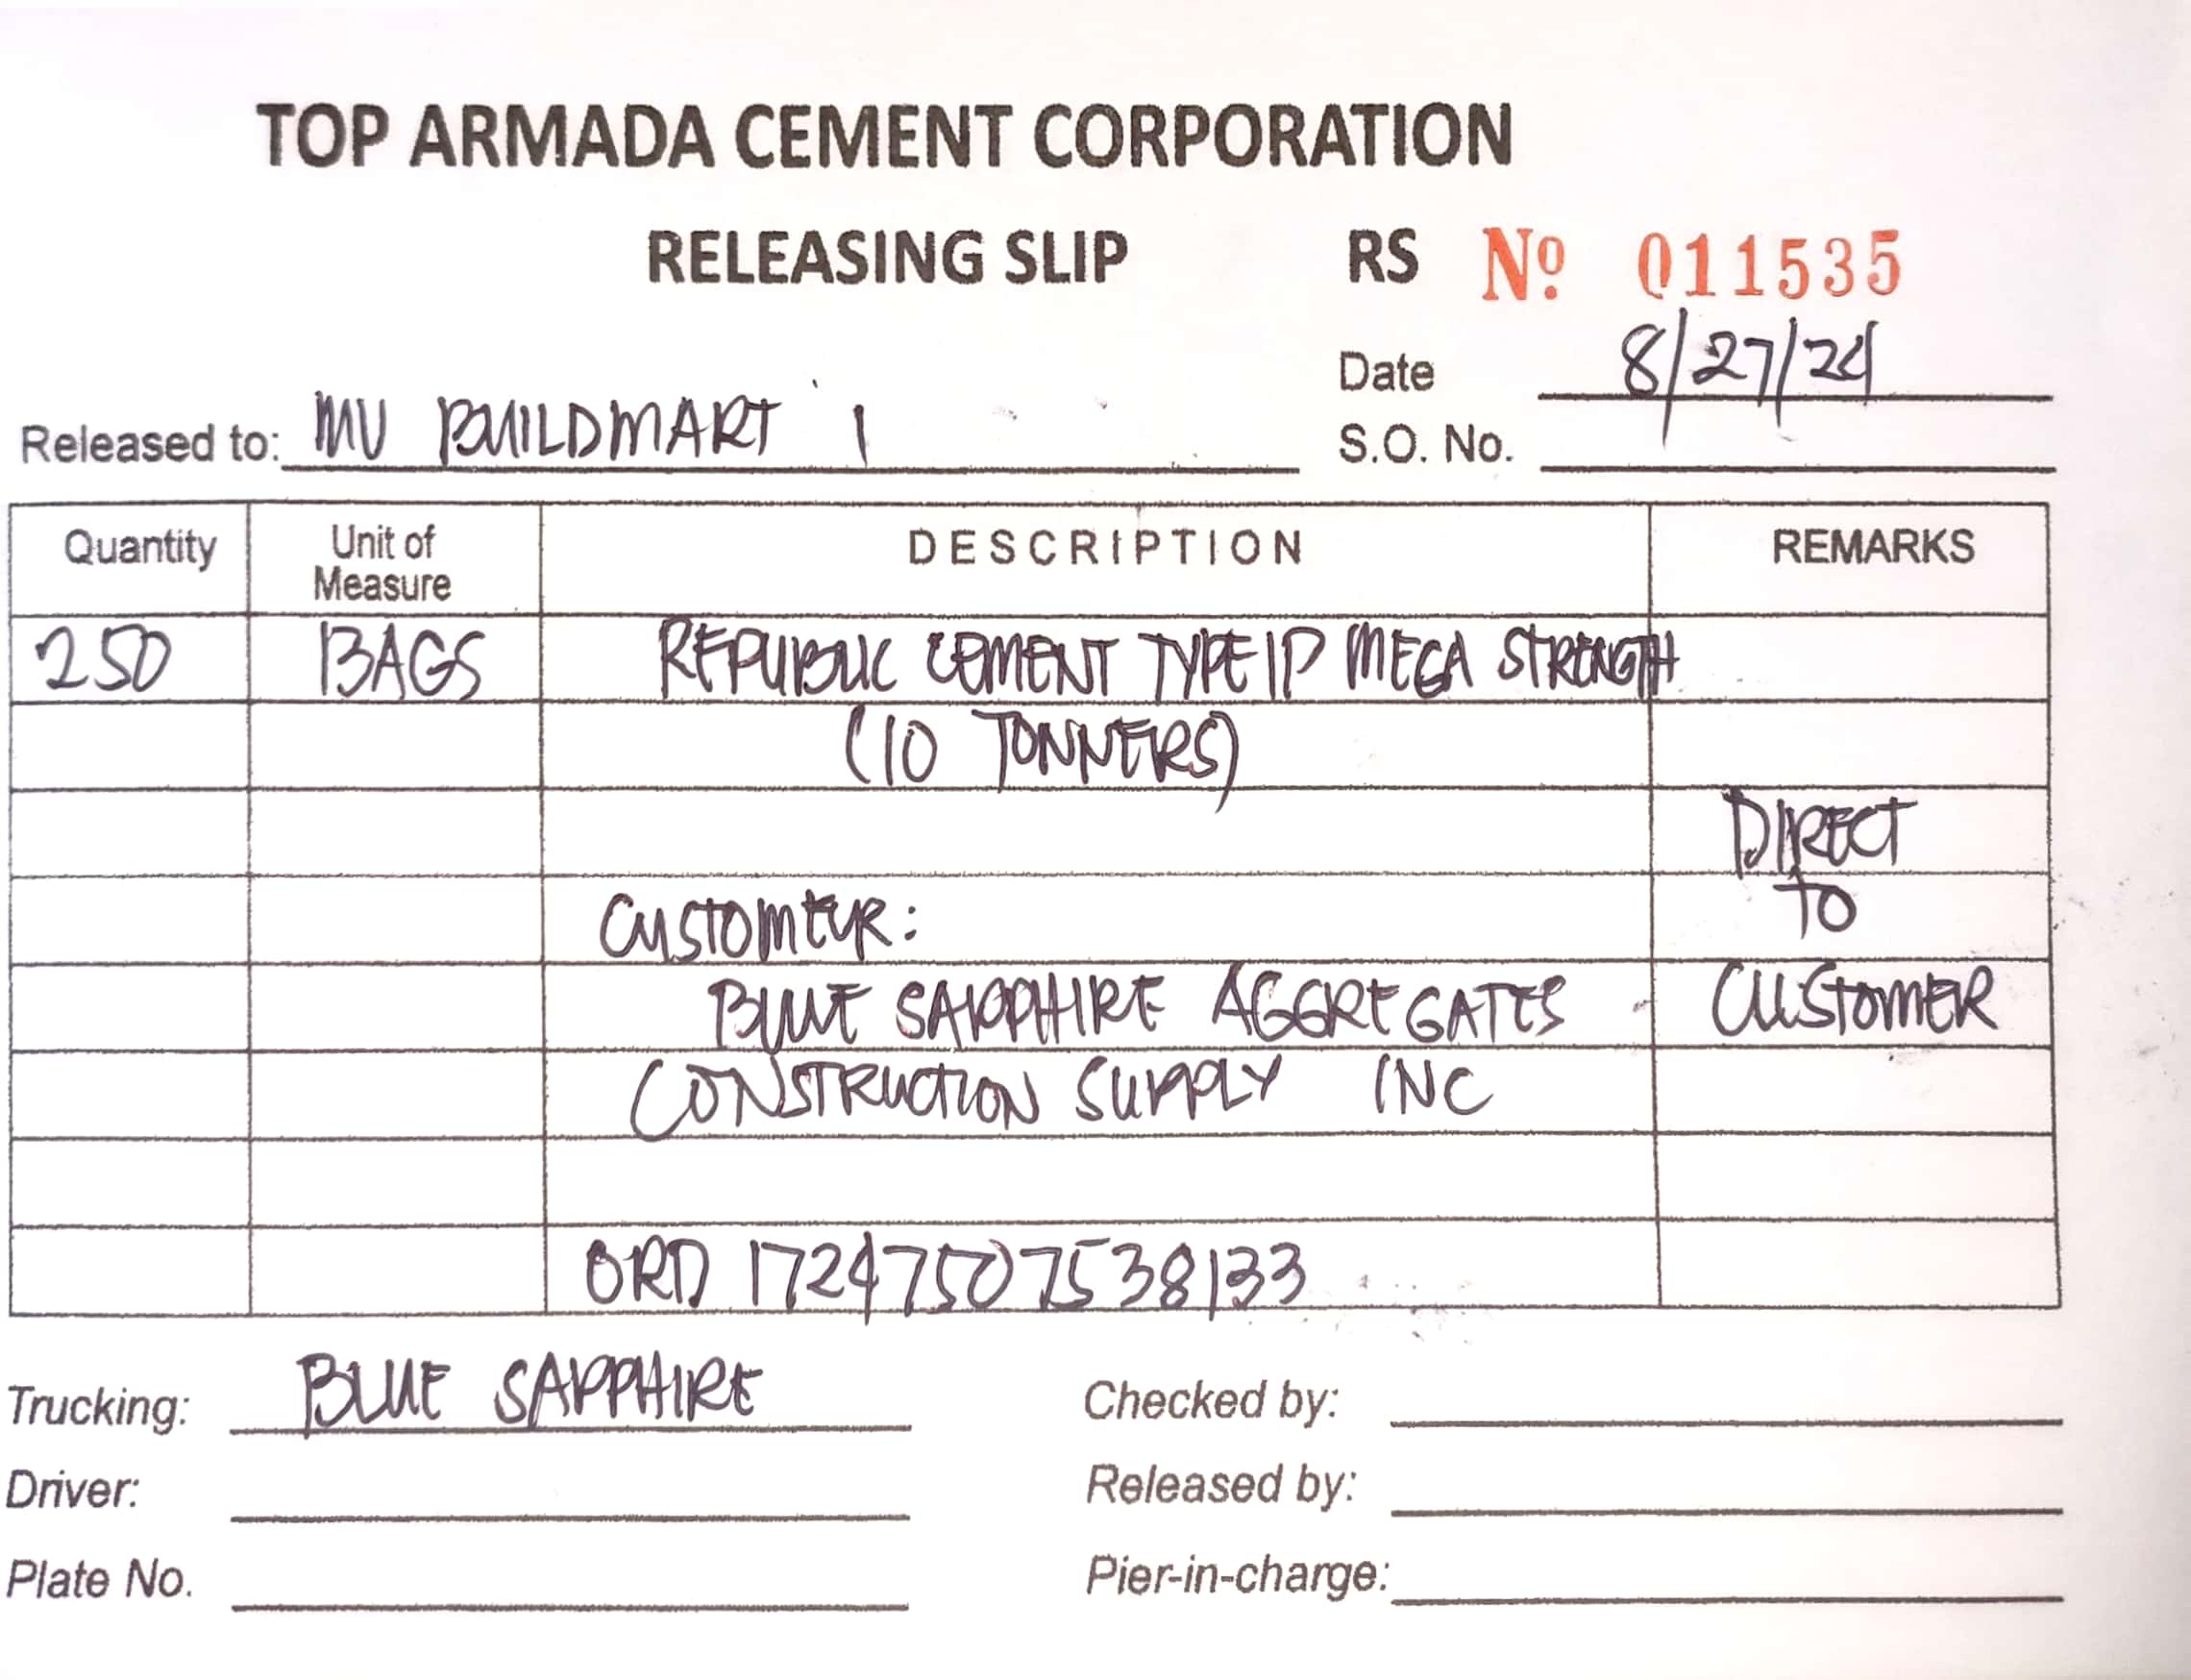 TOP ARMADA CEMENT CORPORATION
RELEASING SLIP RS Nº 011535
Date 8/27/24
Released to: MV BUILDMART 1
S.O. No.
Quantity Unit of Measure DESCRIPTION REMARKS
250 BAGS REPUBLIC CEMENT TYPE 1P MEGA STRENGTH
(10 TONNERS)
DIRECT
CUSTOMER: TO
BLUE SAPPHIRE AGGREGATES CUSTOMER
CONSTRUCTION SUPPLY INC
ORD 17247507538133
Trucking: BLUE SAPPHIRE Checked by:
Driver: Released by:
Plate No. Pier-in-charge: